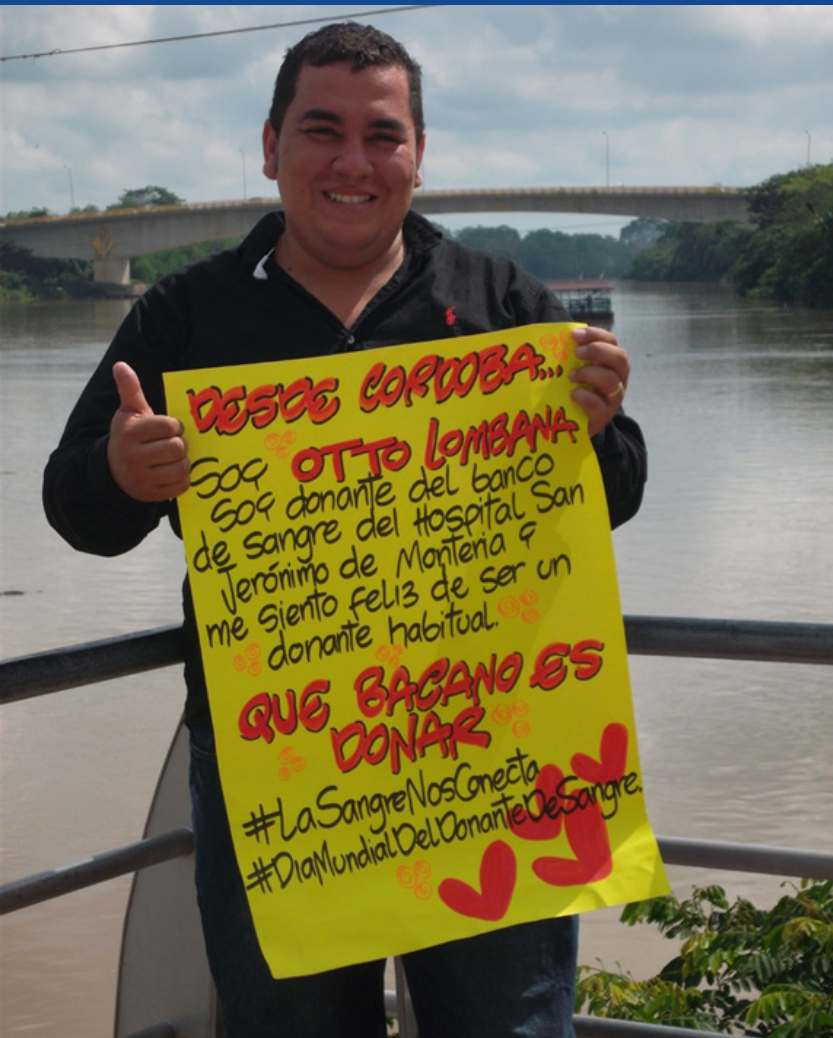 DESDE CORDOBA...
Soy OTTO LOMBANA
Soy donante del banco
de sangre del Hospital San
Jerónimo de Monteria y
me siento feliz de ser un
donante habitual.
QUE BACANO ES
DONAR
#LaSangreNosConecta
#DiaMundialDelDonanteDeSangre.